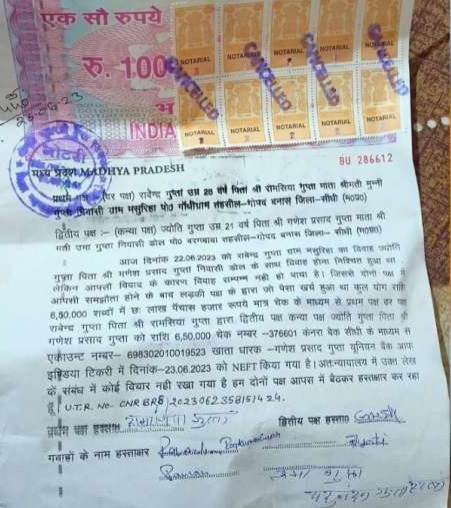 एक सौ रुपये
रु. 100
भ
INDIA
NOTARIAL NOTARIAL NOTARIAL NOTARIAL NOTARIAL
NOTARIAL NOTARIAL NOTARIAL NOTARIAL NOTARIAL
CANCELLED CANCELLED CANCELLED CANCELLED
मध्य प्रदेश MADHYA PRADESH
BU 286612
प्रथम पक्ष :-(वर पक्ष) रावेन्द्र गुप्ता उम्र 28 वर्ष पिता श्री रामसिया गुप्ता माता श्रीमती मुन्नी
गुप्ता निवासी ग्राम मसुरिहा पो0 गाँधीग्राम तहसील-गोपद बनास जिला-सीधी (म0प्र0)
द्वितीय पक्ष :- (कन्या पक्ष) ज्योति गुप्ता उम्र 21 वर्ष पिता श्री गणेश प्रसाद गुप्ता माता श्री
मती उमा गुप्ता निवासी डोल पो0 बरगबाबा तहसील-गोपद बनास जिला- सीधी (म0प्र0)
आज दिनांक 22.06.2023 को रावेन्द्र गुप्ता ग्राम मसुरिहा का विवाह ज्योति
गुप्ता पिता श्री गणेश प्रसाद गुप्ता निवासी डोल के साथ विवाह होना निश्चित हुआ था
लेकिन आपसी विवाद के कारण विवाह सम्पन्न नही हो पाया है। जिससे दोनो पक्ष में
आपसी समझौता होने के बाद लड़की पक्ष के द्वारा जो पैसा खर्च हुआ था कुल योग राशि
6,50,000 शब्दों में छः लाख पैंचास हजार रूपये मात्र चेक के माध्यम से प्रथम पक्ष वर पक्ष
रावेन्द्र गुप्ता पिता श्री रामसिया गुप्ता द्वारा द्वितीय पक्ष कन्या पक्ष ज्योति गुप्ता पिता श्री
गणेश प्रसाद गुप्ता को राशि 6,50,000 चेक नम्बर -376601 केनरा बैंक सीधी के माध्यम से
एकाउन्ट नम्बर- 698302010019523 खाता धारक -गणेश प्रसाद गुप्ता यूनियन बैंक आफ
इण्डिया टिकरी में दिनांक-23.06.2023 को NEFT किया गया है। अतःन्यायालय में उक्त लेख
के संबंध में कोई विचार नही रखा गया है हम दोनों पक्ष आपस में बैठकर हस्ताक्षर कर रहा
U.T.R. No. CNRBR52023062358151424.
प्रथम पक्ष हस्ता द्वितीय पक्ष हस्ता
गवाहों के नाम हस्ताक्षर